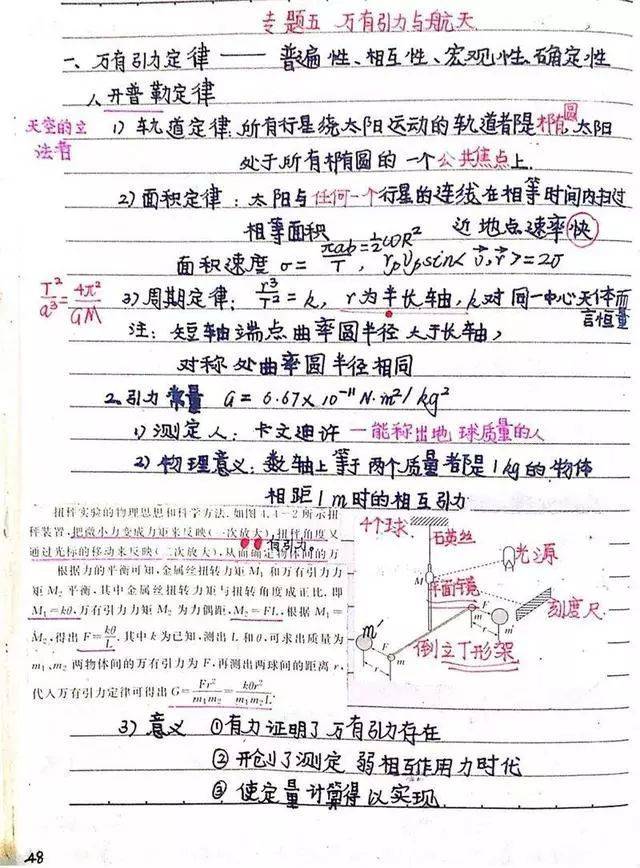 专题五 万有引力与航天
一、万有引力定律 —— 普遍性、相互性、宏观性、确定性
1、开普勒定律
天空的立法者
1) 轨道定律：所有行星绕太阳运动的轨道都是椭圆 太阳
处于所有椭圆的一个公共焦点上.
2) 面积定律：太阳与任何一个行星的连线在相等时间内扫过
相等面积 近地点速率快
面积速度 σ = πab/T = 1/2 ωR², r_p v_p sin<v,r> = 2σ
T²/a³ = 4π²/GM
3) 周期定律：r³/T² = k, r为半长轴, k对同一中心天体而言恒量
注：短轴端点曲率圆半径大于长轴,
对称处曲率圆半径相同
2、引力常量 G = 6.67×10⁻¹¹ N·m²/kg²
1) 测定人：卡文迪许 —能称出地球质量的人
2) 物理意义：数轴上等于两个质量都是1kg的物体
相距1m时的相互引力
扭秤实验的物理思想和科学方法.如图4.4-2所示扭
秤装置,把微小力变成力矩来反映(一次放大),扭秤角度又
通过光标的移动来反映(二次放大),从而确定物体间的万
有引力.
根据力的平衡可知,金属丝扭转力矩M₁和万有引力力
矩M₂平衡.其中金属丝扭转力矩与扭转角度成正比,即
M₁=kθ,万有引力力矩M₂为力偶距,M₂=FL,根据M₁=
M₂,得出F=kθ/L.其中k为已知,测出L和θ,可求出质量为
m₁、m₂两物体间的万有引力为F,再测出两球间的距离r,
代入万有引力定律可得出G=Fr²/m₁m₂=kθr²/m₁m₂L.
4个球
石英丝
光源
M
平面镜
刻度尺
F
m
r
m′
m′
F
m
r
倒立丁形架
3) 意义 ①有力证明了万有引力存在
② 开创了测定弱相互作用力时代
③ 使定量计算得以实现.
48